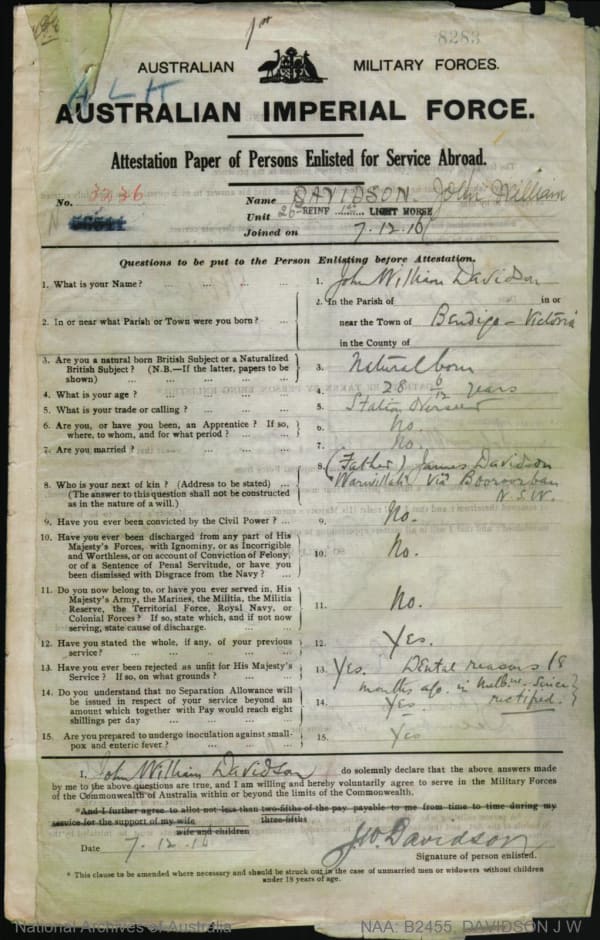 1st
8283
AUSTRALIAN MILITARY FORCES.
A L H
AUSTRALIAN IMPERIAL FORCE.
Attestation Paper of Persons Enlisted for Service Abroad.
No. 3236 Name DAVIDSON. John William
Unit 26th REINF 1st LIGHT HORSE
Joined on 7.12.16
Questions to be put to the Person Enlisting before Attestation.
1. What is your Name? ... ... ... ... 1. John William Davidson
2. In or near what Parish or Town were you born? ... 2. In the Parish of in or
near the Town of Bendigo - Victoria
in the County of
3. Are you a natural born British Subject or a Naturalized
British Subject? (N.B.—If the latter, papers to be
shown) ... ... ... ... ... 3. Natural born
4. What is your age? ... ... ... ... 4. 28 6/12 years
5. What is your trade or calling? ... ... ... 5. Station Overseer
6. Are you, or have you been, an Apprentice? If so,
where, to whom, and for what period? ... ... 6. No.
7. Are you married? ... ... ... ... 7. No.
8. Who is your next of kin? (Address to be stated) ...
(The answer to this question shall not be constructed
as in the nature of a will.) 8. (Father) James Davidson
Via Booroorban
N.S.W.
9. Have you ever been convicted by the Civil Power? ... 9. No.
10. Have you ever been discharged from any part of His
Majesty's Forces, with Ignominy, or as Incorrigible
and Worthless, or on account of Conviction of Felony,
or of a Sentence of Penal Servitude, or have you
been dismissed with Disgrace from the Navy? ... 10. No.
11. Do you now belong to, or have you ever served in, His
Majesty's Army, the Marines, the Militia, the Militia
Reserve, the Territorial Force, Royal Navy, or
Colonial Forces? If so, state which, and if not now
serving, state cause of discharge. 11. No.
12. Have you stated the whole, if any, of your previous
service? ... ... ... ... ... 12. Yes.
13. Have you ever been rejected as unfit for His Majesty's
Service? If so, on what grounds? ... ... 13. Yes. Dental reasons 18
months ago. in Melbne. Since
rectified.
14. Do you understand that no Separation Allowance will
be issued in respect of your service beyond an
amount which together with Pay would reach eight
shillings per day ... ... ... ... 14. Yes.
15. Are you prepared to undergo inoculation against small-
pox and enteric fever? ... ... ... 15. Yes
I, John William Davidson do solemnly declare that the above answers made
by me to the above questions are true, and I am willing and hereby voluntarily agree to serve in the Military Forces
of the Commonwealth of Australia within or beyond the limits of the Commonwealth.
*And I further agree to allot not less than two-fifths of the pay payable to me from time to time during my
three-fifths
service for the support of my wife
wife and children
Date 7.12.16 J W Davidson
Signature of person enlisted.
* This clause to be amended where necessary and should be struck out in the case of unmarried men or widowers without children
under 18 years of age.
National Archives of Australia NAA: B2455, DAVIDSON J W